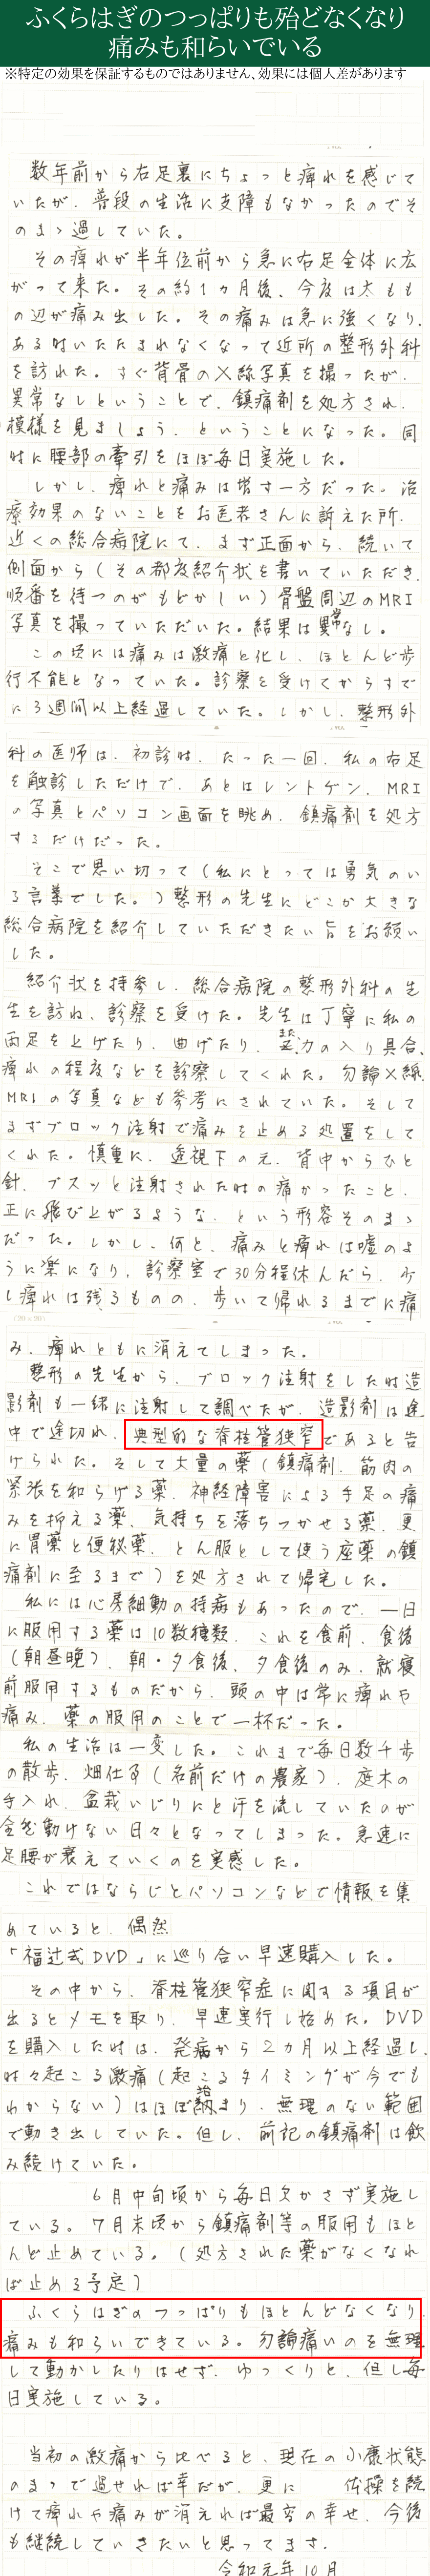 ふくらはぎのつっぱりも殆どなくなり
痛みも和らいでいる
※特定の効果を保証するものではありません、効果には個人差があります
数年前から右足裏にちょっと痺れを感じて
いたが、普段の生活に支障もなかったのでそ
のまゝ過していた。
その痺れが半年位前から急に右足全体に広
がって来た。その約1カ月後、今度は太もも
の辺が痛み出した。その痛みは急に強くなり、
ある時いたたまれなくなって近所の整形外科
を訪れた。すぐ背骨のX線写真を撮ったが、
異常なしということで、鎮痛剤を処方され、
模様を見ましょう、ということになった。同
時に腰部の牽引をほぼ毎日実施した。
しかし、痺れと痛みは増す一方だった。治
療効果のないことをお医者さんに訴えた所、
近くの総合病院にて、まず正面から、続いて
側面から（その都度紹介状を書いていただき、
順番を待つのがもどかしい）骨盤周辺のMRI
写真を撮っていただいた。結果は異常なし。
この頃には痛みは激痛と化し、ほとんど歩
行不能となっていた。診察を受けてからすで
に3週間以上経過していた。しかし、整形外
科の医師は、初診時、たった一回、私の右足
を触診しただけで、あとはレントゲン、MRI
の写真とパソコン画面を眺め、鎮痛剤を処方
するだけだった。
そこで思い切って（私にとっては勇気のい
る言葉でした。）整形の先生にどこか大きな
総合病院を紹介していただきたい旨をお願い
した。
紹介状を持参し、総合病院の整形外科の先
生を訪ね、診察を受けた。先生は丁寧に私の
両足を上げたり、曲げたり、また力の入り具合、
痺れの程度などを診察してくれた。勿論X線、
MRIの写真なども参考にされていた。そして
まずブロック注射で痛みを止める処置をして
くれた。慎重に、透視下の元、背中からひと
針、ブスッと注射された時の痛かったこと、
正に飛び上がるような、という形容そのまゝ
だった。しかし、何と、痛みと痺れは嘘のよ
うに楽になり、診察室で30分程休んだら、少
し痺れは残るものの、歩いて帰れるまでに痛
み、痺れともに消えてしまった。
整形の先生から、ブロック注射をした時造
影剤も一緒に注射して調べたが、造影剤は途
中で途切れ、典型的な脊柱管狭窄であると告
げられた。そして大量の薬（鎮痛剤、筋肉の
緊張を和らげる薬、神経障害による手足の痛
みを抑える薬、気持ちを落ちつかせる薬、更
に胃薬と便秘薬、とん服として使う座薬の鎮
痛剤に至るまで）を処方されて帰宅した。
私には心房細動の持病もあったので、一日
に服用する薬は10数種類、これを食前、食後
（朝昼晩）、朝・夕食後、夕食後のみ、就寝
前服用するものだから、頭の中は常に痺れや
痛み、薬の服用のことで一杯だった。
私の生活は一変した。これまで毎日数千歩
の散歩、畑仕事（名前だけの農家）、庭木の
手入れ、盆栽いじりにと汗を流していたのが
全然動けない日々となってしまった。急速に
足腰が衰えていくのを実感した。
これではならじとパソコンなどで情報を集
めていると、偶然
「福辻式DVD」に巡り合い早速購入した。
その中から、脊柱管狭窄症に関する項目が
出るとメモを取り、早速実行し始めた。DVD
を購入した時は、発病から2カ月以上経過し、
時々起こる激痛（起こるタイミングが今でも
わからない）はほぼ治まり、無理のない範囲
で動き出していた。但し、前記の鎮痛剤は飲
み続けていた。
6月中旬頃から毎日欠かさず実施し
ている。7月末頃から鎮痛剤等の服用もほと
んど止めている。（処方された薬がなくなれ
ば止める予定）
ふくらはぎのつっぱりもほとんどなくなり、
痛みも和らいできている。勿論痛いのを無理
して動かしたりはせず、ゆっくりと、但し毎
日実施している。
当初の激痛から比べると、現在の小康状態
のまゝで過せれば幸だが、更に 体操を続
けて痺れや痛みが消えれば最高の幸せ、今後
も継続していきたいと思ってます。
令和元年10月